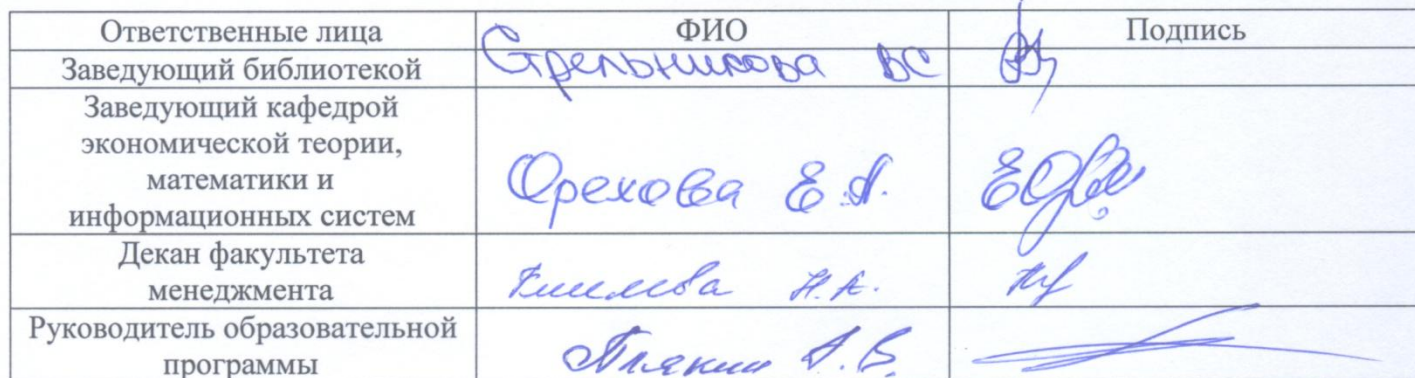 Ответственные лица ФИО Подпись
Заведующий библиотекой Стрельникова ВС
Заведующий кафедрой
экономической теории,
математики и
информационных систем
Орехова Е.А.
Декан факультета
менеджмента
Н.А.
Руководитель образовательной
программы
Плякин А.В.